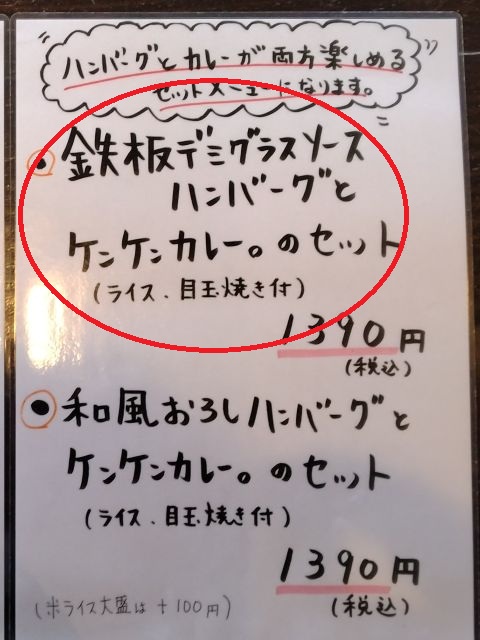 ハンバーグとカレーが両方楽しめる
セットメニューになります。
鉄板デミグラスソース
ハンバーグと
ケンケンカレー。のセット
(ライス、目玉焼き付)
1390円
(税込)
和風おろしハンバーグと
ケンケンカレー。のセット
(ライス、目玉焼き付)
1390円
(税込)
(米ライス大盛は+100円)